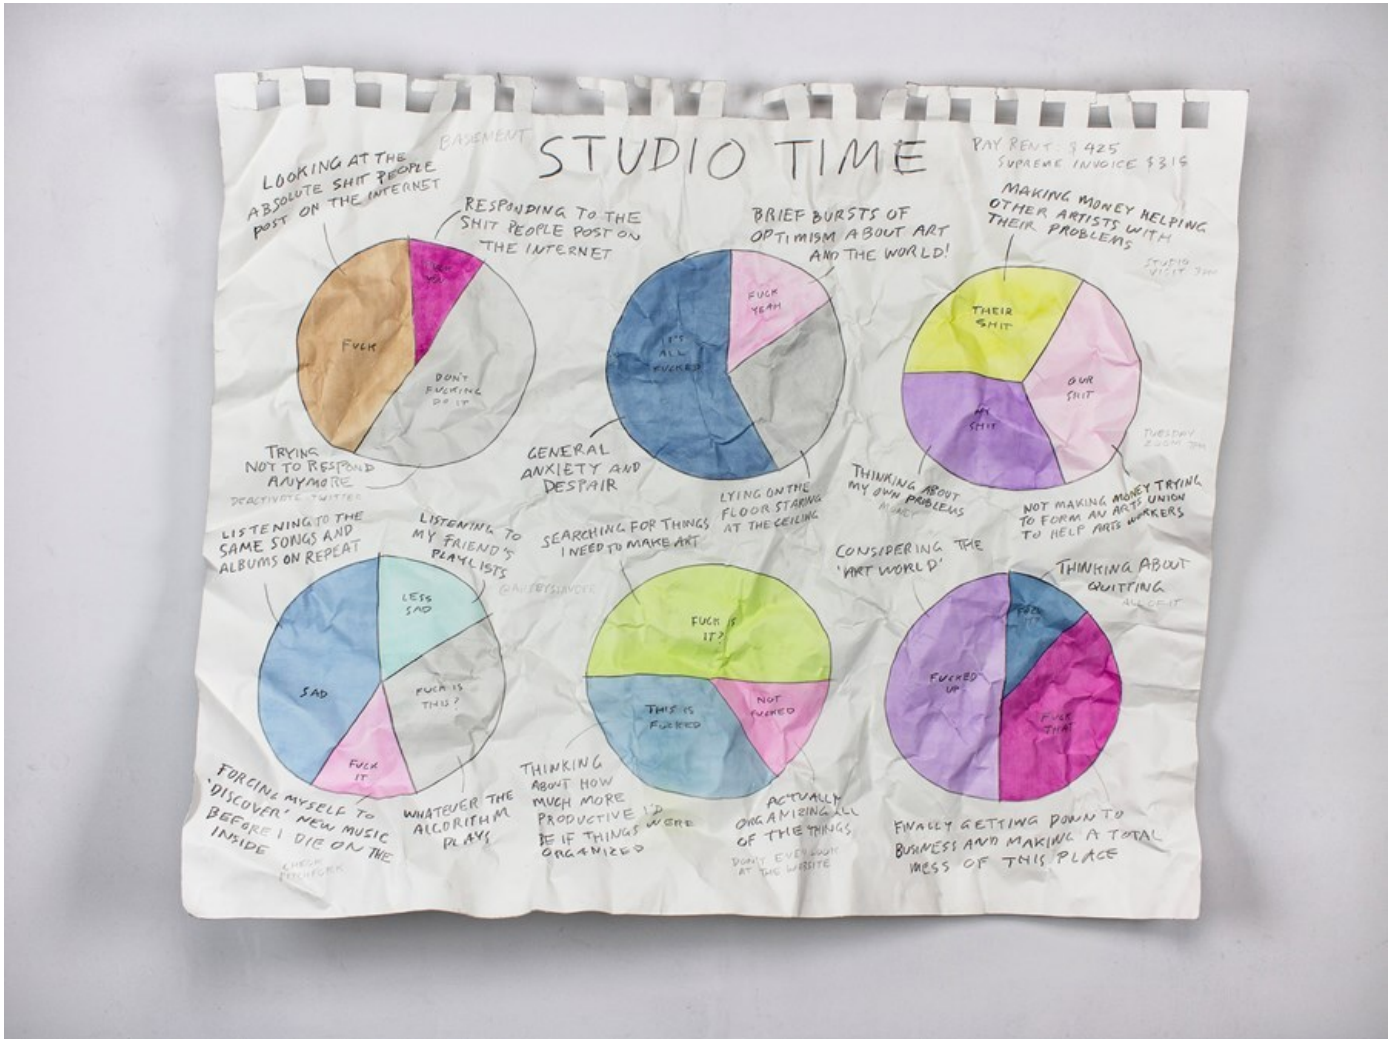 BASEMENT
STUDIO TIME
PAY RENT: $425
SUPREME INVOICE $315
LOOKING AT THE
ABSOLUTE SHIT PEOPLE
POST ON THE INTERNET
RESPONDING TO THE
SHIT PEOPLE POST ON
THE INTERNET
FUCK
YOU
FUCK
DON'T
FUCKING
DO IT
TRYING
NOT TO RESPOND
ANYMORE
DEACTIVATE TWITTER
BRIEF BURSTS OF
OPTIMISM ABOUT ART
AND THE WORLD!
FUCK
YEAH
IT'S
ALL
FUCKED
GENERAL
ANXIETY AND
DESPAIR
LYING ON THE
FLOOR STARING
AT THE CEILING
MAKING MONEY HELPING
OTHER ARTISTS WITH
THEIR PROBLEMS
STUDIO
VISIT
THEIR
SHIT
OUR
SHIT
MY
SHIT
TUESDAY
ZOOM
THINKING ABOUT
MY OWN PROBLEMS
MONEY
NOT MAKING MONEY TRYING
TO FORM AN ARTS UNION
TO HELP ARTS WORKERS
LISTENING TO THE
SAME SONGS AND
ALBUMS ON REPEAT
LISTENING TO
MY FRIEND'S
PLAYLISTS
LESS
SAD
SAD
FUCK IS
THIS?
FUCK
IT
FORCING MYSELF TO
'DISCOVER' NEW MUSIC
BEFORE I DIE ON THE
INSIDE
CHECK
PITCHFORK
WHATEVER THE
ALGORITHM
PLAYS
SEARCHING FOR THINGS
I NEED TO MAKE ART
FUCK IS
IT?
THIS IS
FUCKED
NOT
FUCKED
THINKING
ABOUT HOW
MUCH MORE
PRODUCTIVE I'D
BE IF THINGS WERE
ORGANIZED
ACTUALLY
ORGANIZING ALL
OF THE THINGS
DON'T EVEN LOOK
AT THE WEBSITE
CONSIDERING THE
'ART WORLD'
THINKING ABOUT
QUITTING
ALL OF IT
FUCK
IT?
FUCKED
UP
FUCK
THAT
FINALLY GETTING DOWN TO
BUSINESS AND MAKING A TOTAL
MESS OF THIS PLACE